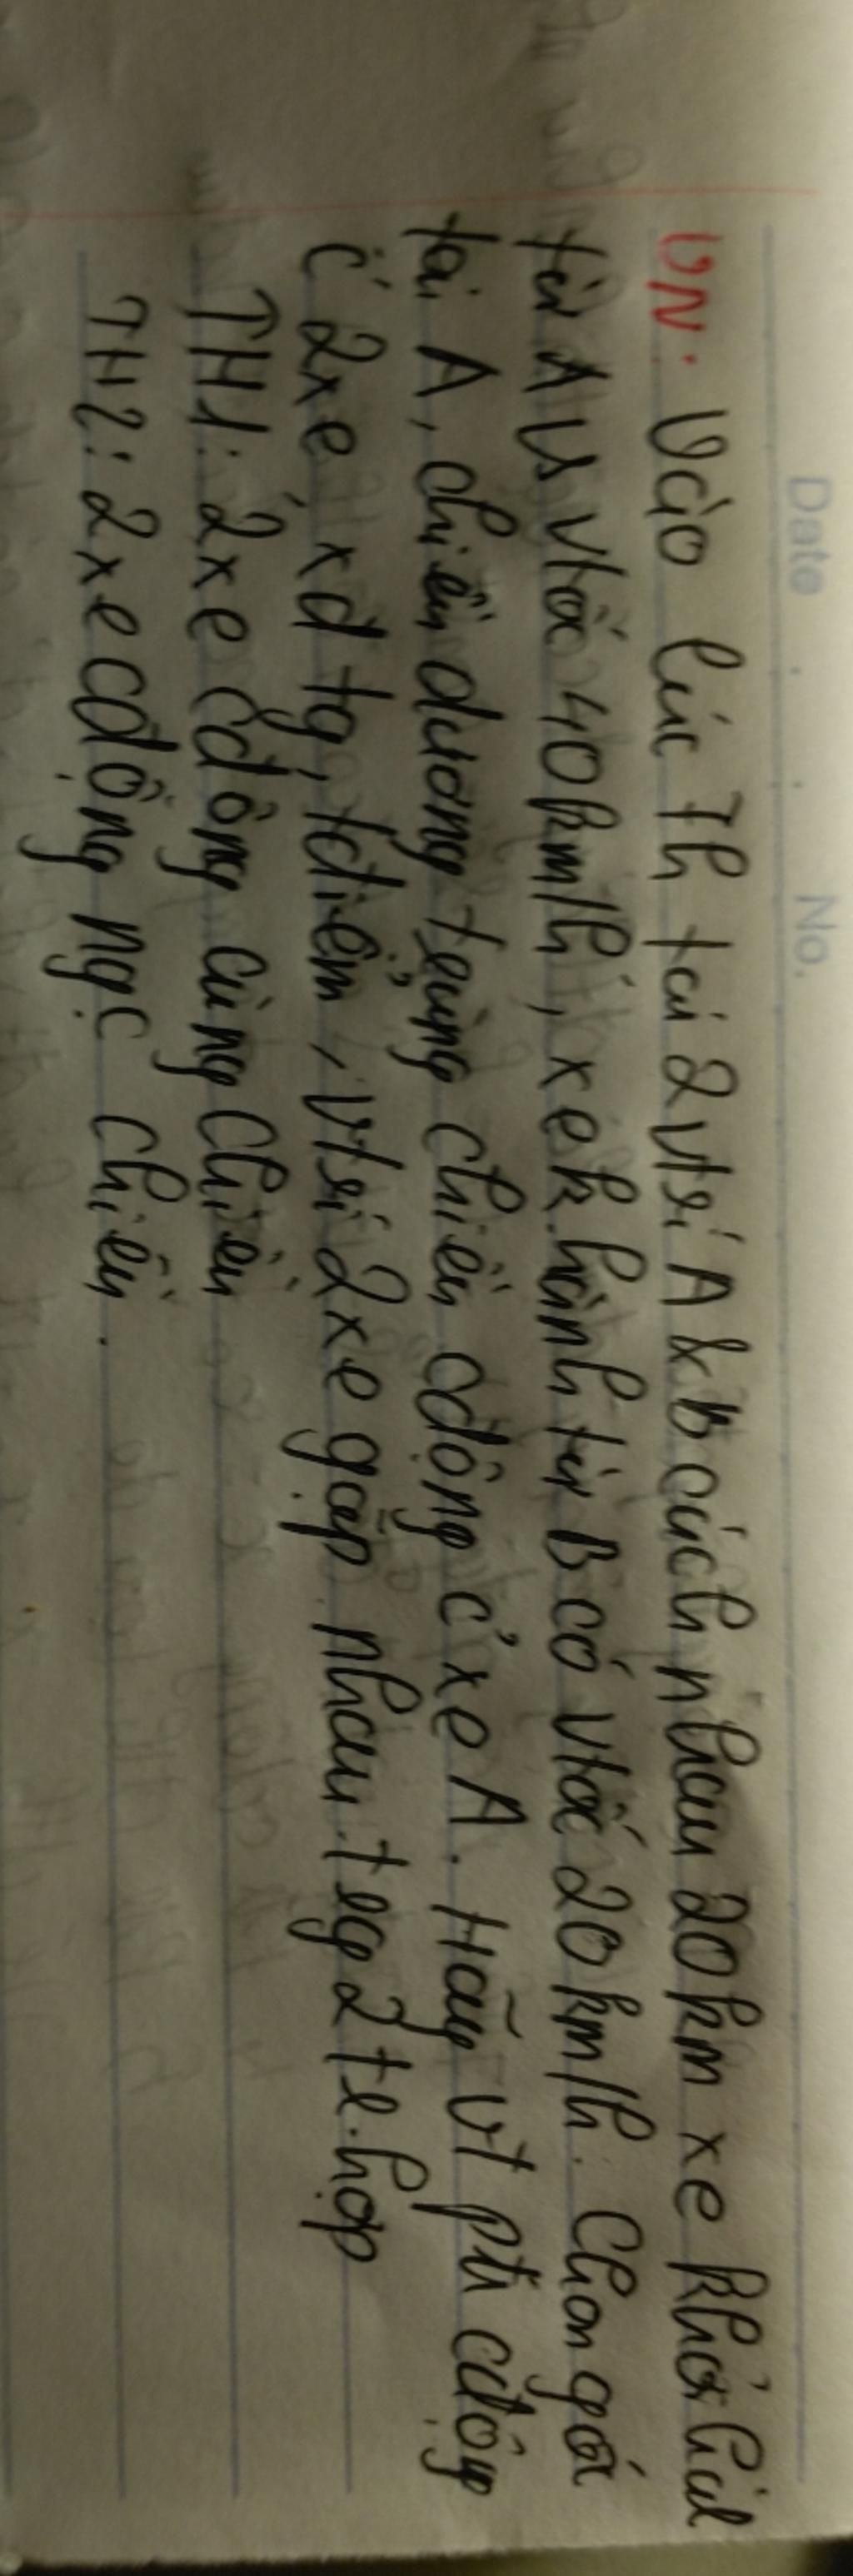 Date . . No.
VN. Vào lúc 7h tại 2 vtrí A & B cách nhau 20km xe khởi hành
từ A vs vtốc 40km/h, xe k.hành từ B có vtốc 20km/h. Chọn gốc
tại A, chiều dương trùng chiều cđộng c' xe A. Hãy vt pt cđộng
c' 2xe, xđ tg, tđiểm, vtrí 2xe gặp nhau trg 2 tr.hợp
TH1: 2xe cđộng cùng chiều
TH2: 2xe cđộng ngc chiều.